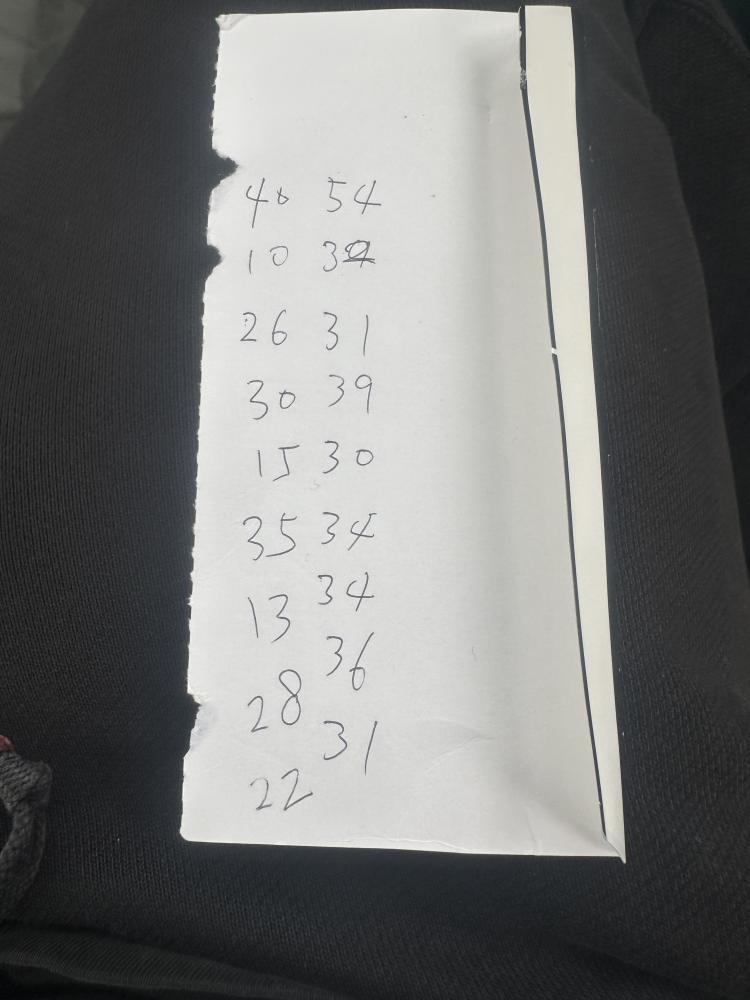 40 54
10 3
26 31
30 39
15 30
35 34
13 34
28 36
22 31